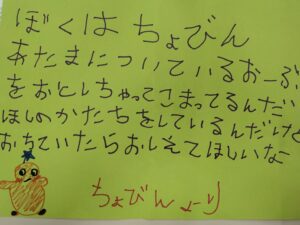 ぼくはちょびん
あたまについているおーぶ
をおとしちゃってこまってるんだい
ほしのかたちをしているんだけど
おちていたらおしえてほしいな
ちょびんより